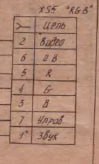 XS5 "RGB"
Цепь
2 Видео
6 0В
5 R
4 G
3 B
7 Управ
1 Звук